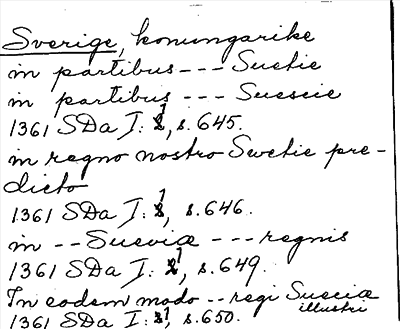 Sverige, konungarike
in partibus --- Suetie
in partibus --- Suescie
1361 SDa I: 1, s. 645.
in regno nostro Swetie pre-
dicto
1361 SDa I: 1, s. 646.
in -- Sueviæ --- regnis
1361 SDa I: 1, s. 649.
In eodem modo -- regi Sueciæ
illustri
1361 SDa I: 1, s. 650.